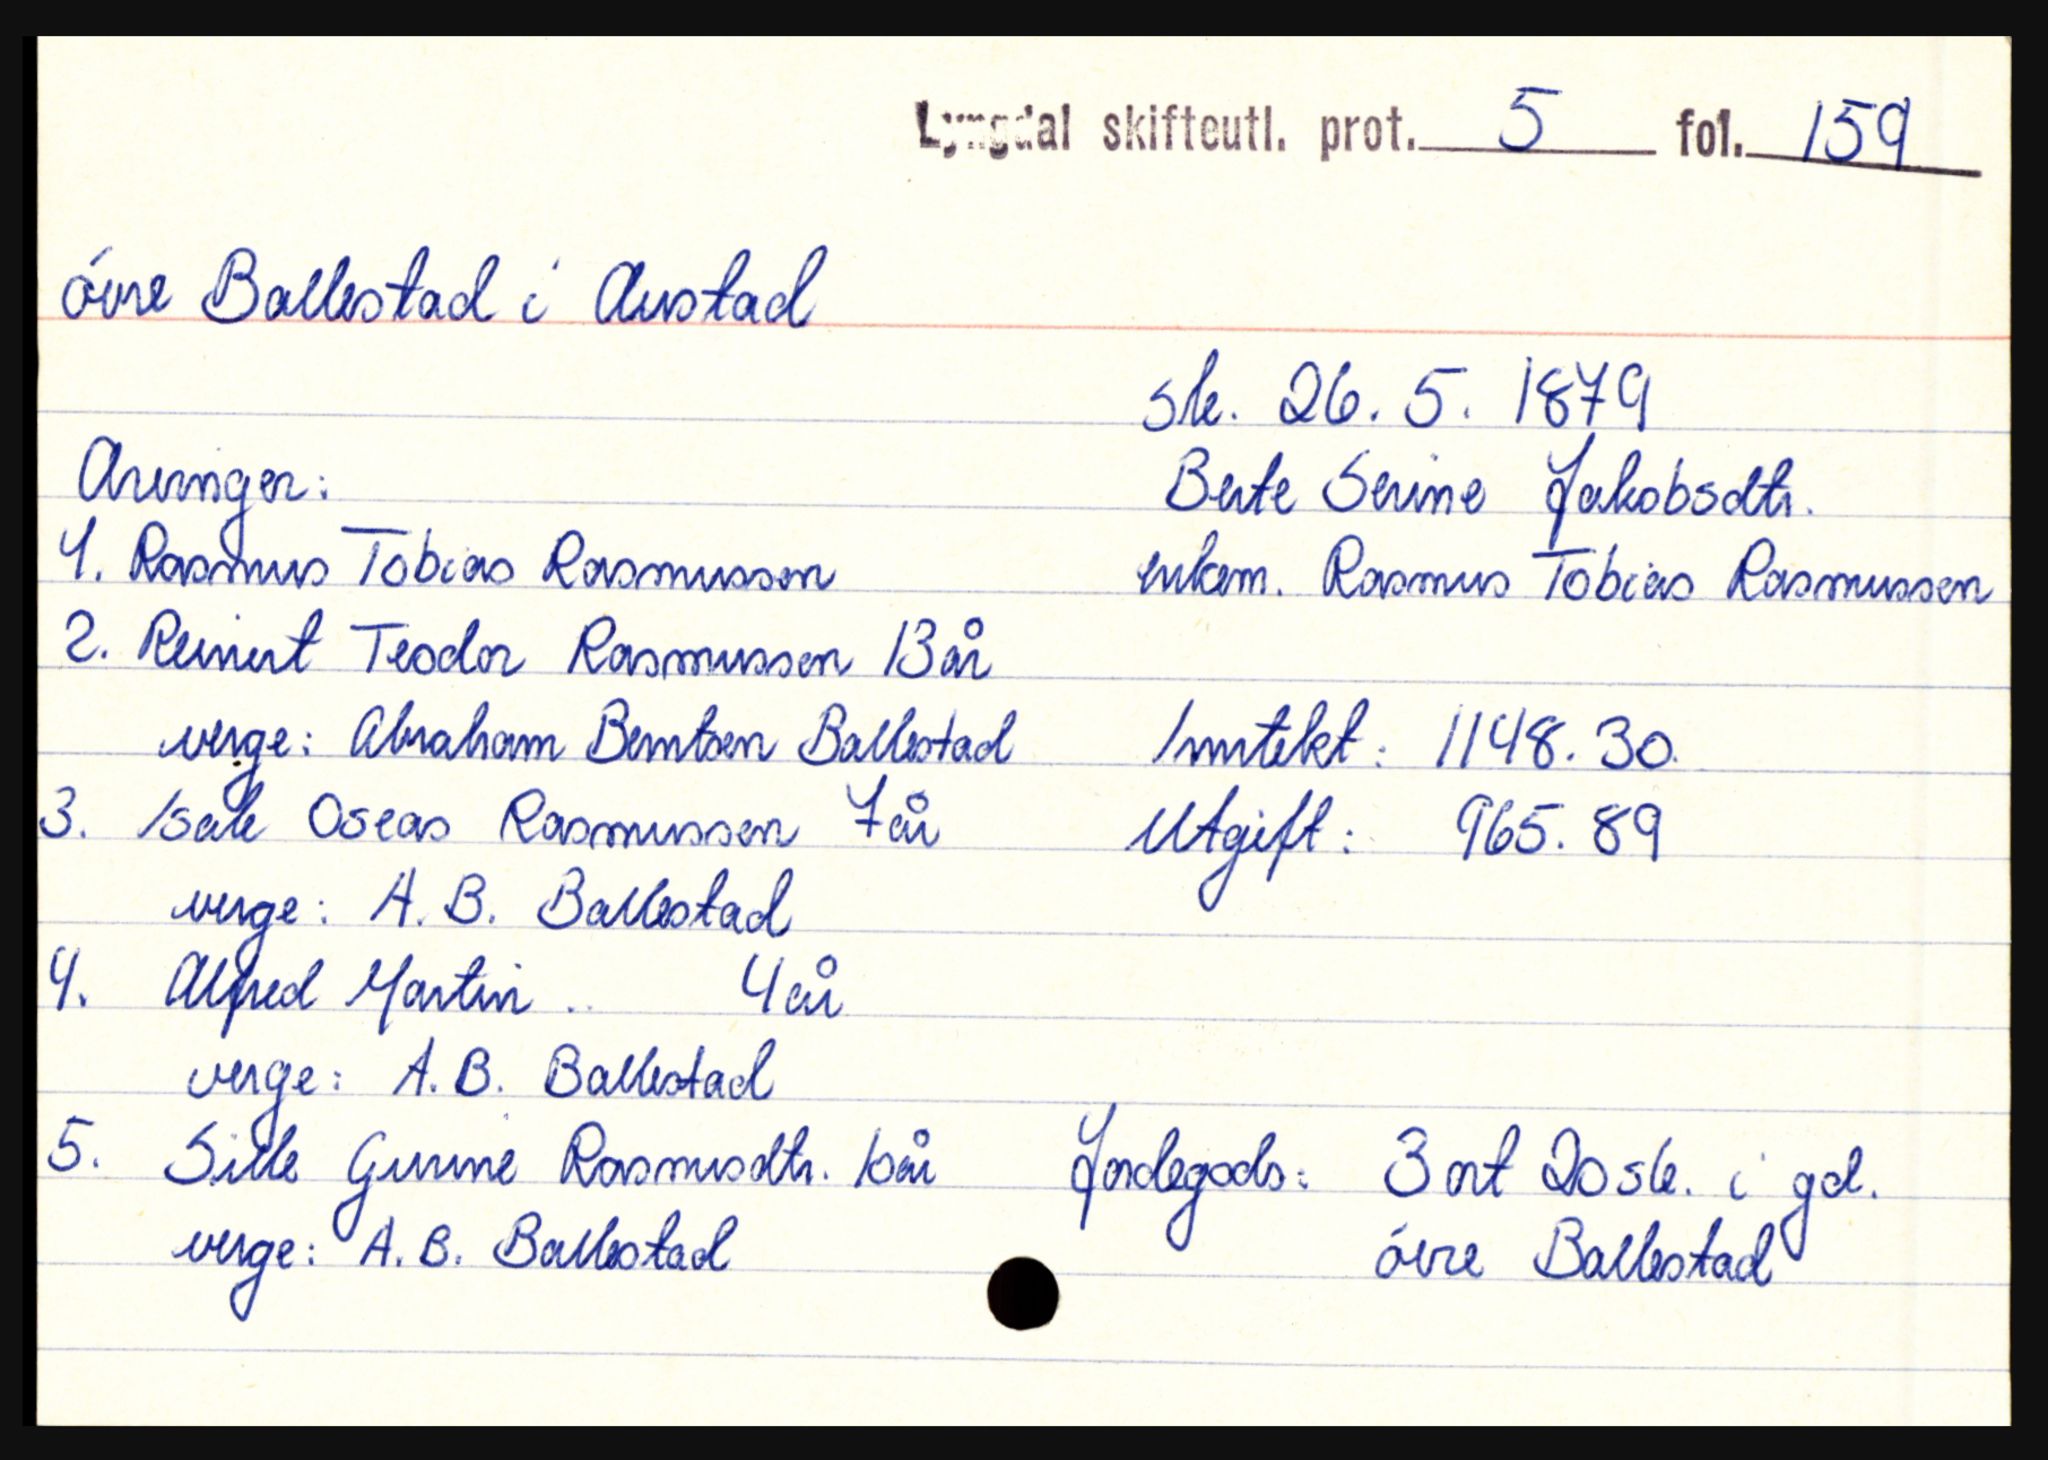 Lyngdal skifteutl. prot. 5 fol. 159
óvre Ballestad i Austad
sk. 26. 5. 1879
Berte Serine Jakobsdtr.
enkem. Rasmus Tobias Rasmussen
Inntekt: 1148.30
Utgift: 965.89
Arvinger:
1. Rasmus Tobias Rasmussen
2. Reinert Teodor Rasmussen 13 år
verge: Abraham Berntsen Ballestad
3. Isak Oseas Rasmussen 7 år
verge: A. B. Ballestad
4. Alfred Martin .. 4 år
verge: A. B. Ballestad
5. Sille Gurine Rasmusdtr. år
verge: A. B. Ballestad
Jordegods: 3 ort 20 sk. i gd.
óvre Ballestad